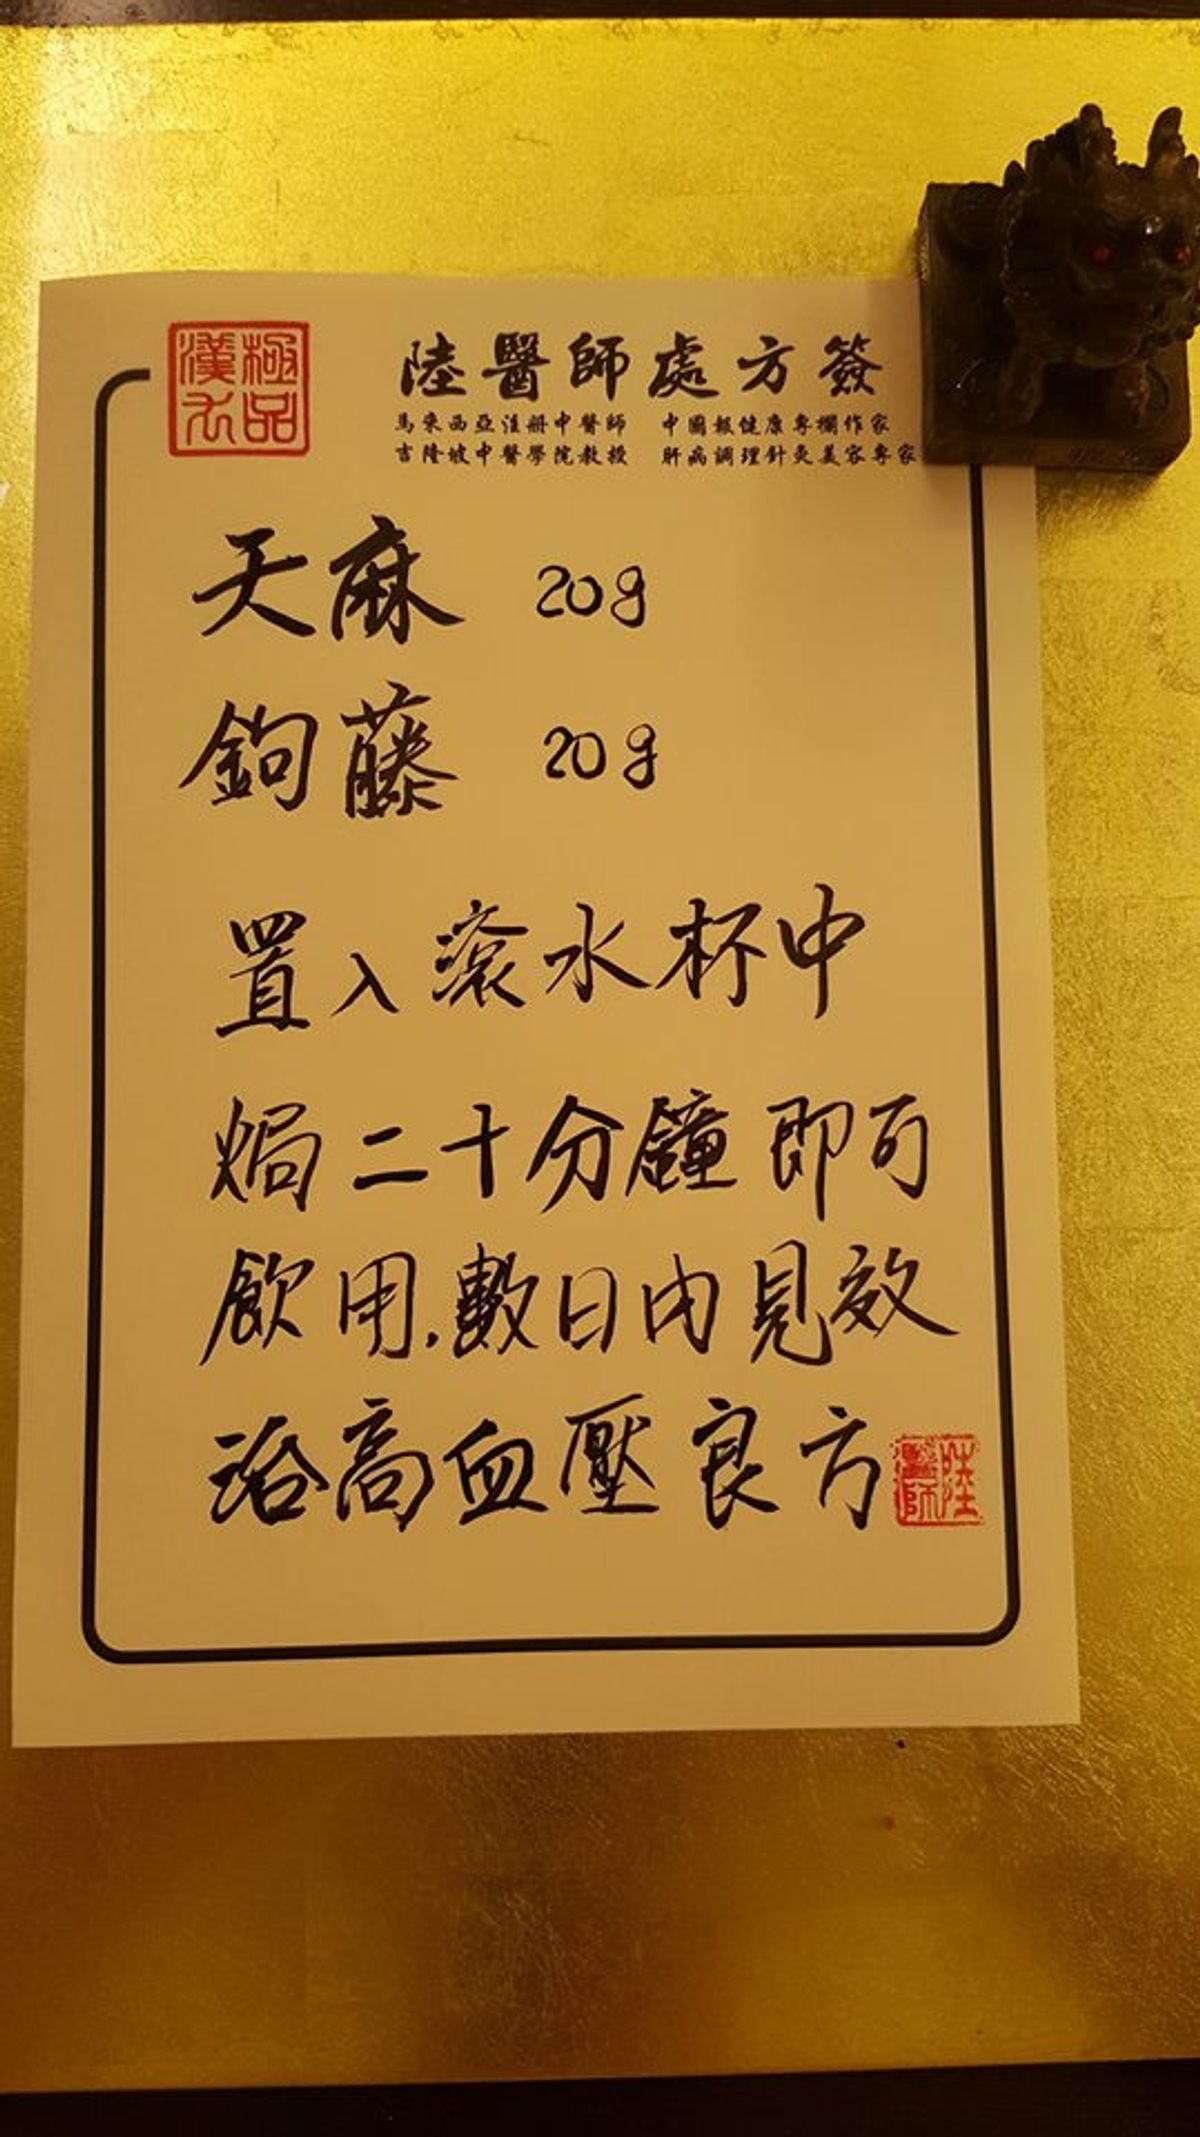 極品
漢方
陸醫師處方簽
馬來西亞註冊中醫師 中國報健康專欄作家
吉隆坡中醫學院教授 肝病調理針灸美容專家
天麻 20g
鉤藤 20g
置入滾水杯中
焗二十分鐘即可
飲用.數日內見效
治高血壓良方
陸醫師